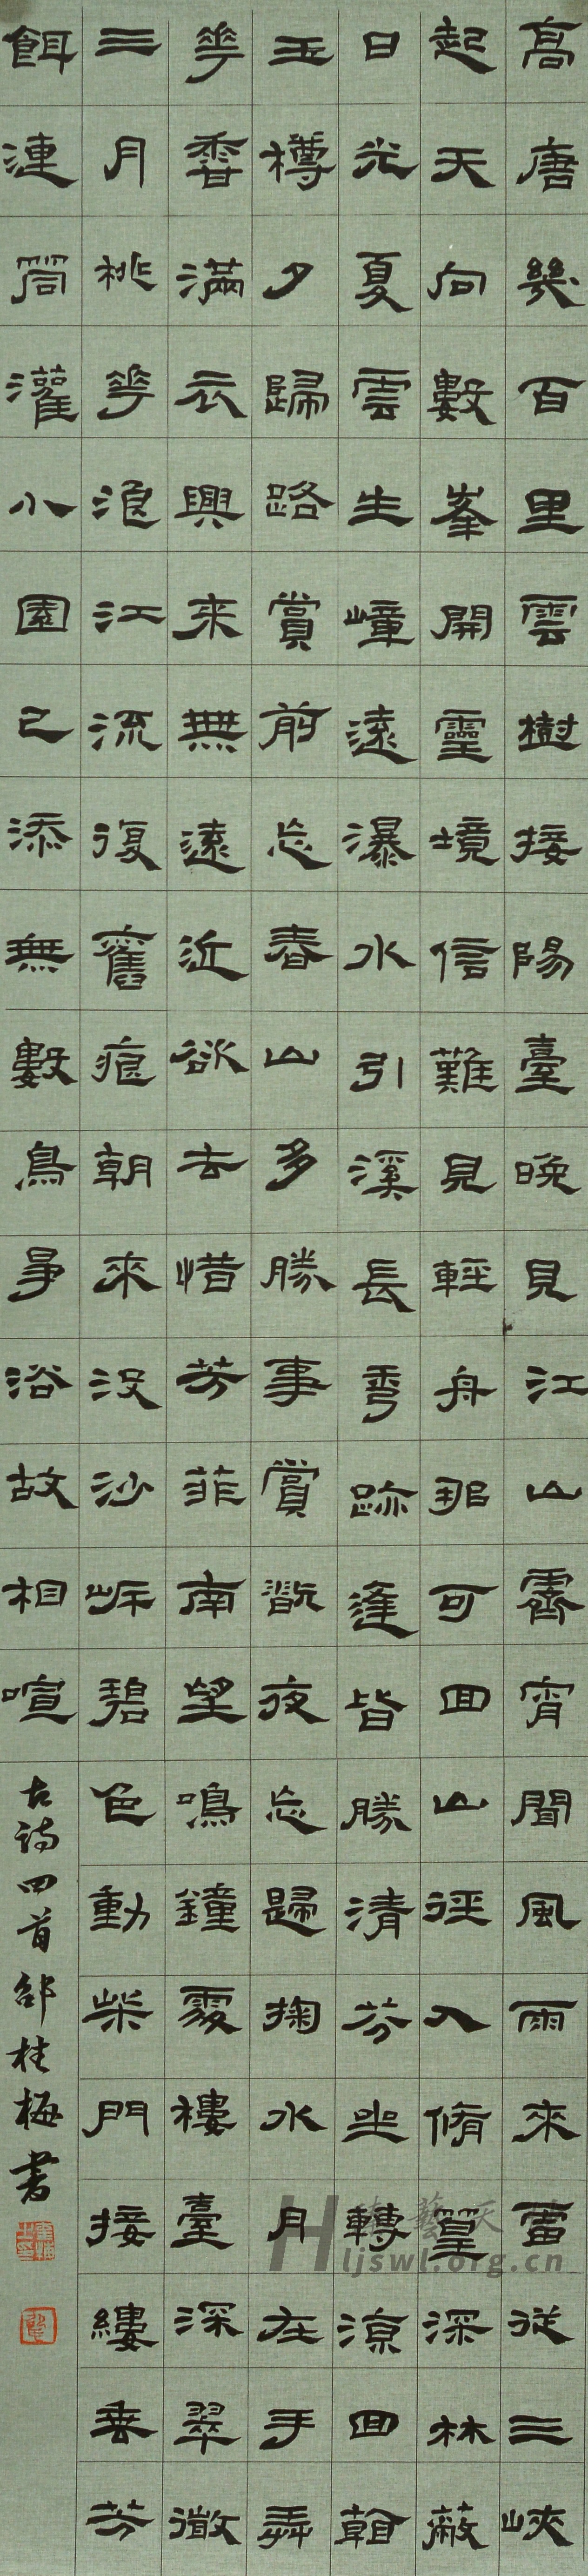 高唐幾百里雲樹接陽臺晚見江山霽宵聞風雨來雷從三峽
起天向數峯開靈境信難見輕舟那可回山徑入脩篁深林蔽
日光夏雲生嶂遠瀑水引溪長秀跡逢皆勝清芬坐轉涼回看
玉樽夕歸路賞前忘春山多勝事賞翫夜忘歸掬水月在手弄
華香滿衣興来無遠近欲去惜芳菲南望鳴鐘處樓臺深翠微
三月桃華浪江流復舊痕朝來没沙岍碧色動柴門接縷垂芳
餌連筒灌小園已添無數鳥爭浴故相喧
古詩四首邵桂梅書
Hljswl.org.cn